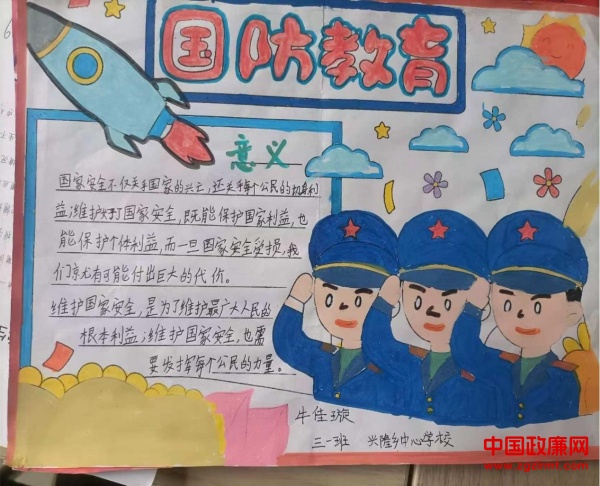 国防教育
意义
国家安全不仅关乎国家的兴亡，还关乎每个公民的切身利
益；维护好国家安全，既能保护国家利益，也
能保护个体利益，而一旦国家安全受损，我
们就有可能付出巨大的代价。
维护国家安全，是为了维护最广大人民的
根本利益；维护国家安全，也需
要发挥每个公民的力量。
牛佳璇
三一班 兴隆乡中心学校
中国政廉网